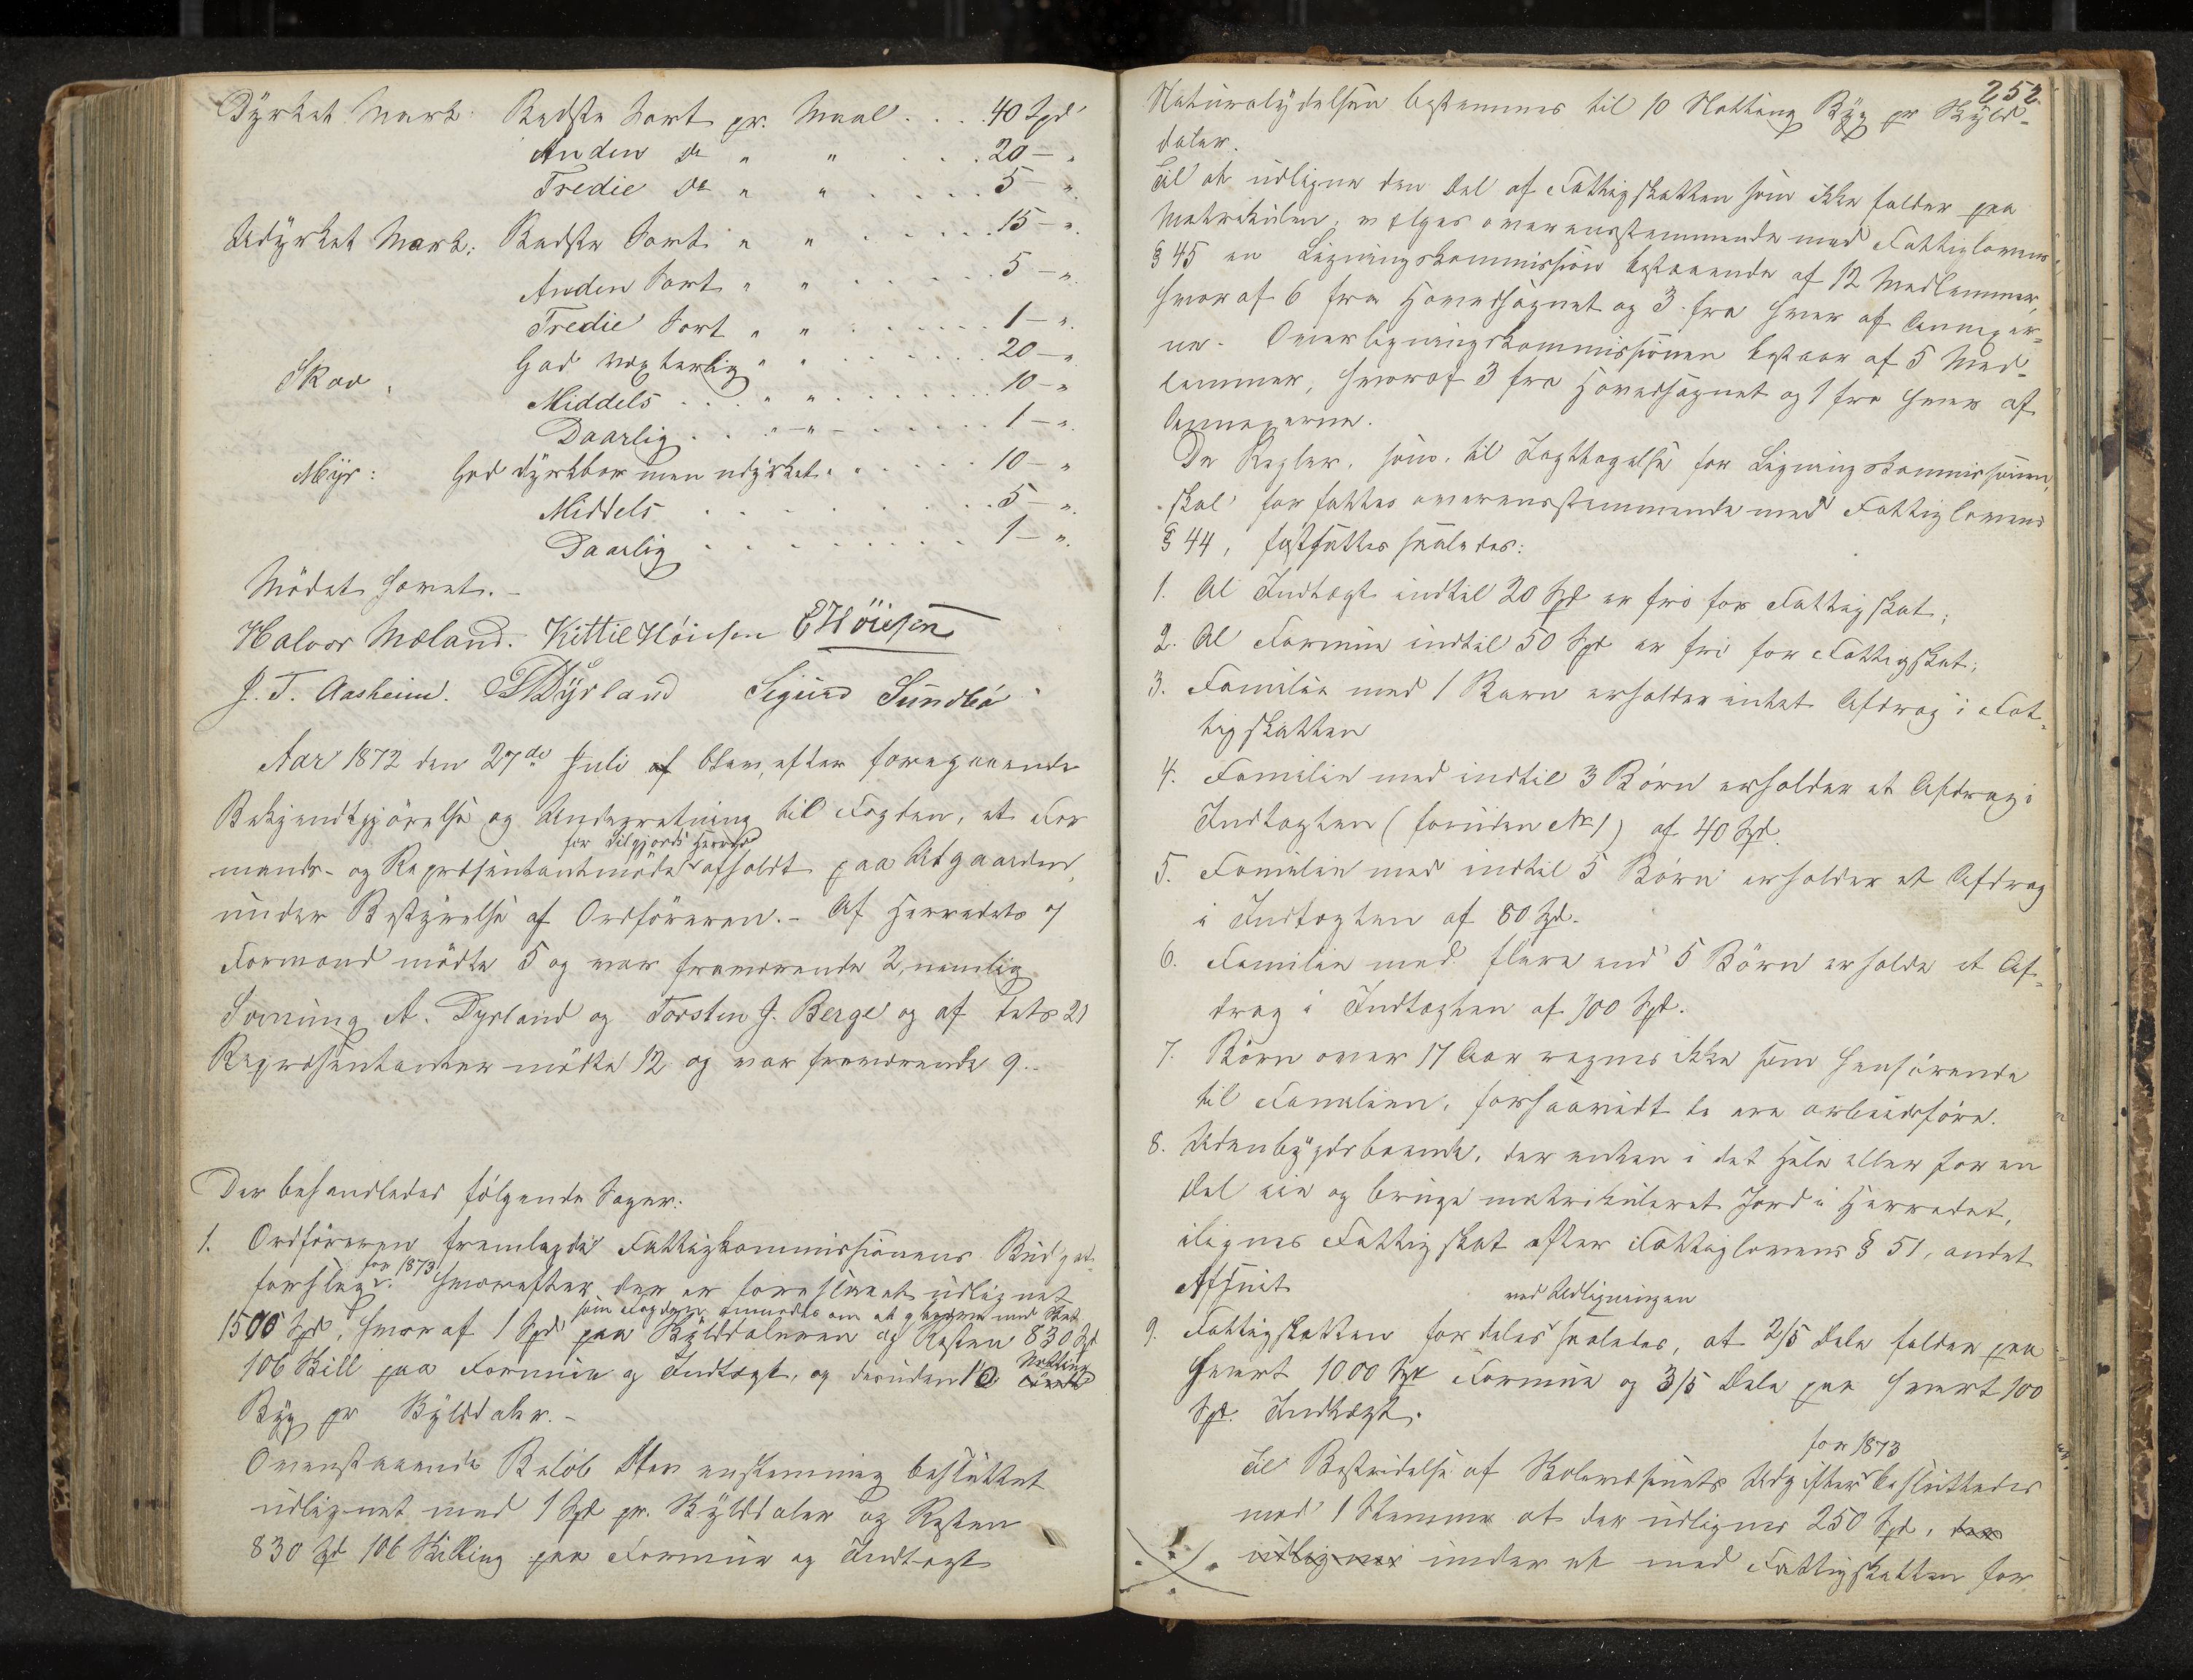 Dyrket Mark: Bedste Sort pr. Maal . . . 40 Spd
Anden Do " " . . . 20 — "
Tredie Do " " . . . . 5 — "
Udyrket Mark: Bedste Sort " " . . . . . 15 — "
Anden Sort " " . . . . . 5 — "
Tredie Sort " " . . . . . 1 — "
Skov, God væxterlig " " . . . . . 20 — "
Middels . . . " " . . . . . . 10 — "
Daarlig . . " — " — . . . . . 1 — "
Myr: God dyrkbar men udyrket " . . . . . 10 — "
Middels . . . . . . . . 5 — "
Daarlig . . . . . . . . 1 — "
Mödet hævet. —
Halvor Moland. Kittil Höiesen E Höiesen
J. T. Aasheim. Dyrland Sigurd Sundbö
Aar 1872 den 27de Juli af blev, efter foregaaende
Bekjendtgjörelse og Underretning til Fogden, et For
for Seljords Herred
mands- og Repræsentantmöde afholdt paa Utgaarden,
under Bestyrelse af Ordföreren. – Af Herredets 7
Formænd mödte 5 og var fraværende 2, nemlig
A. Dyrland og Torsten J. Berge og af dets 21
Repræsentanter mödte 12 og var fraværende 9. –
Der behandledes fölgende Sager:
1. Ordföreren fremlagde Fattigkommissionens Budget-
for 1873
forslag, hvorefter der er foreslaaet udlignet
som Fogden anmodes om at med Skat
1500 Spd, hvoraf 1 Spd paa Skylddaleren og Resten 830 Spd
Notting
106 Skill paa Formue og Indtægt, og desuden 10
Byg pr Skylddaler. –
Ovenstaaende Belöb blev enstemmig besluttet
udlignet med 1 Spd pr. Skylddaler og Resten
830 Spd 106 Skilling paa Formue og Indtægt
252.
Naturalydelsen bestemmes til 10 Notting Byg pr Skyld-
daler.
Til at udligne den Del af Fattigskatten som ikke falder paa
Matrikulen, vælges overensstemmende med Fattiglovens
§ 45 en Ligningskommission bestaaende af 12 Medlemmer,
hvoraf 6 fra Hovedsognet og 3 fra hver af Annexer-
ne. Overligningskommissionen bestaar af 5 Med-
lemmer, hvoraf 3 fra Hovedsognet og 1 fra hver af
Annexerne.
De Regler, som, til Iagttagelse for Ligningskommissionen,
skal forfattes overensstemmende med Fattiglovens
§ 44, fastsattes saaledes:
1. Al Indtægt indtil 20 Spd er fri for Fattigskat;
2. Al Formue indtil 50 Spd er fri for Fattigskat;
3. Familie med 1 Barn erholder intet Afdrag i Fat-
tigskatten
4. Familie med indtil 3 Börn erholder et Afdrag i
Indtægten (foruden No 1) af 40 Spd.
5. Familie med indtil 5 Börn erholder et Afdrag
i Indtægten af 80 Spd.
6. Familie med flere end 5 Börn erholde et Af-
drag i Indtægten af 100 Spd.
7. Börn over 17 Aar regnes ikke som henhörende
til Familien, forsaavidt de ere arbeidsföre.
8. Udenbygdsboende, der enten i det Hele eller for en
Del eie og bruge matrikuleret Jord i Herredet,
ilignes Fattigskat efter Fattiglovens § 51, andet
Afsnit
ved Udligningen
9. Fattigskatten fordeles saaledes, at 2/5 Dele falder paa
hvert 1000 Spd Formue og 3/5 Dele paa hvert 100
Spd. Indtægt.
for 1873
Til Bestridelse af Skolevæsenets Udgifter besluttedes
med 1 Stemme at der udlignes 250 Spd, der
udlignes under et med Fattigskatten for